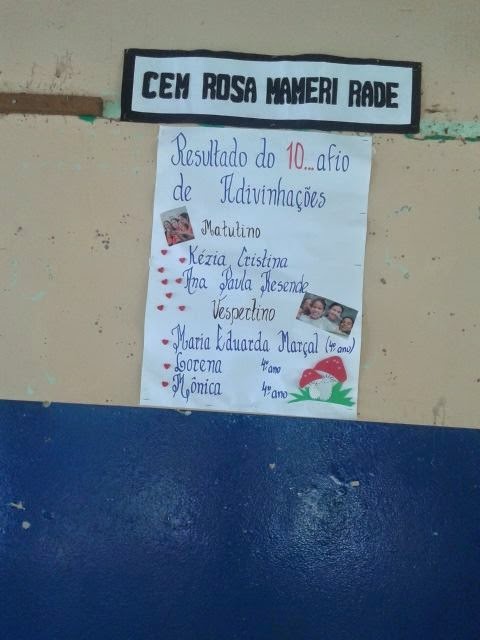 CEM ROSA MAMERI RADE
Resultado do 10...afio
de Adivinhações
Matutino
Kézia Cristina
Ana Paula Resende
Vespertino
Maria Eduarda Marçal (4º ano)
Lorena 4º ano
Mônica 4º ano